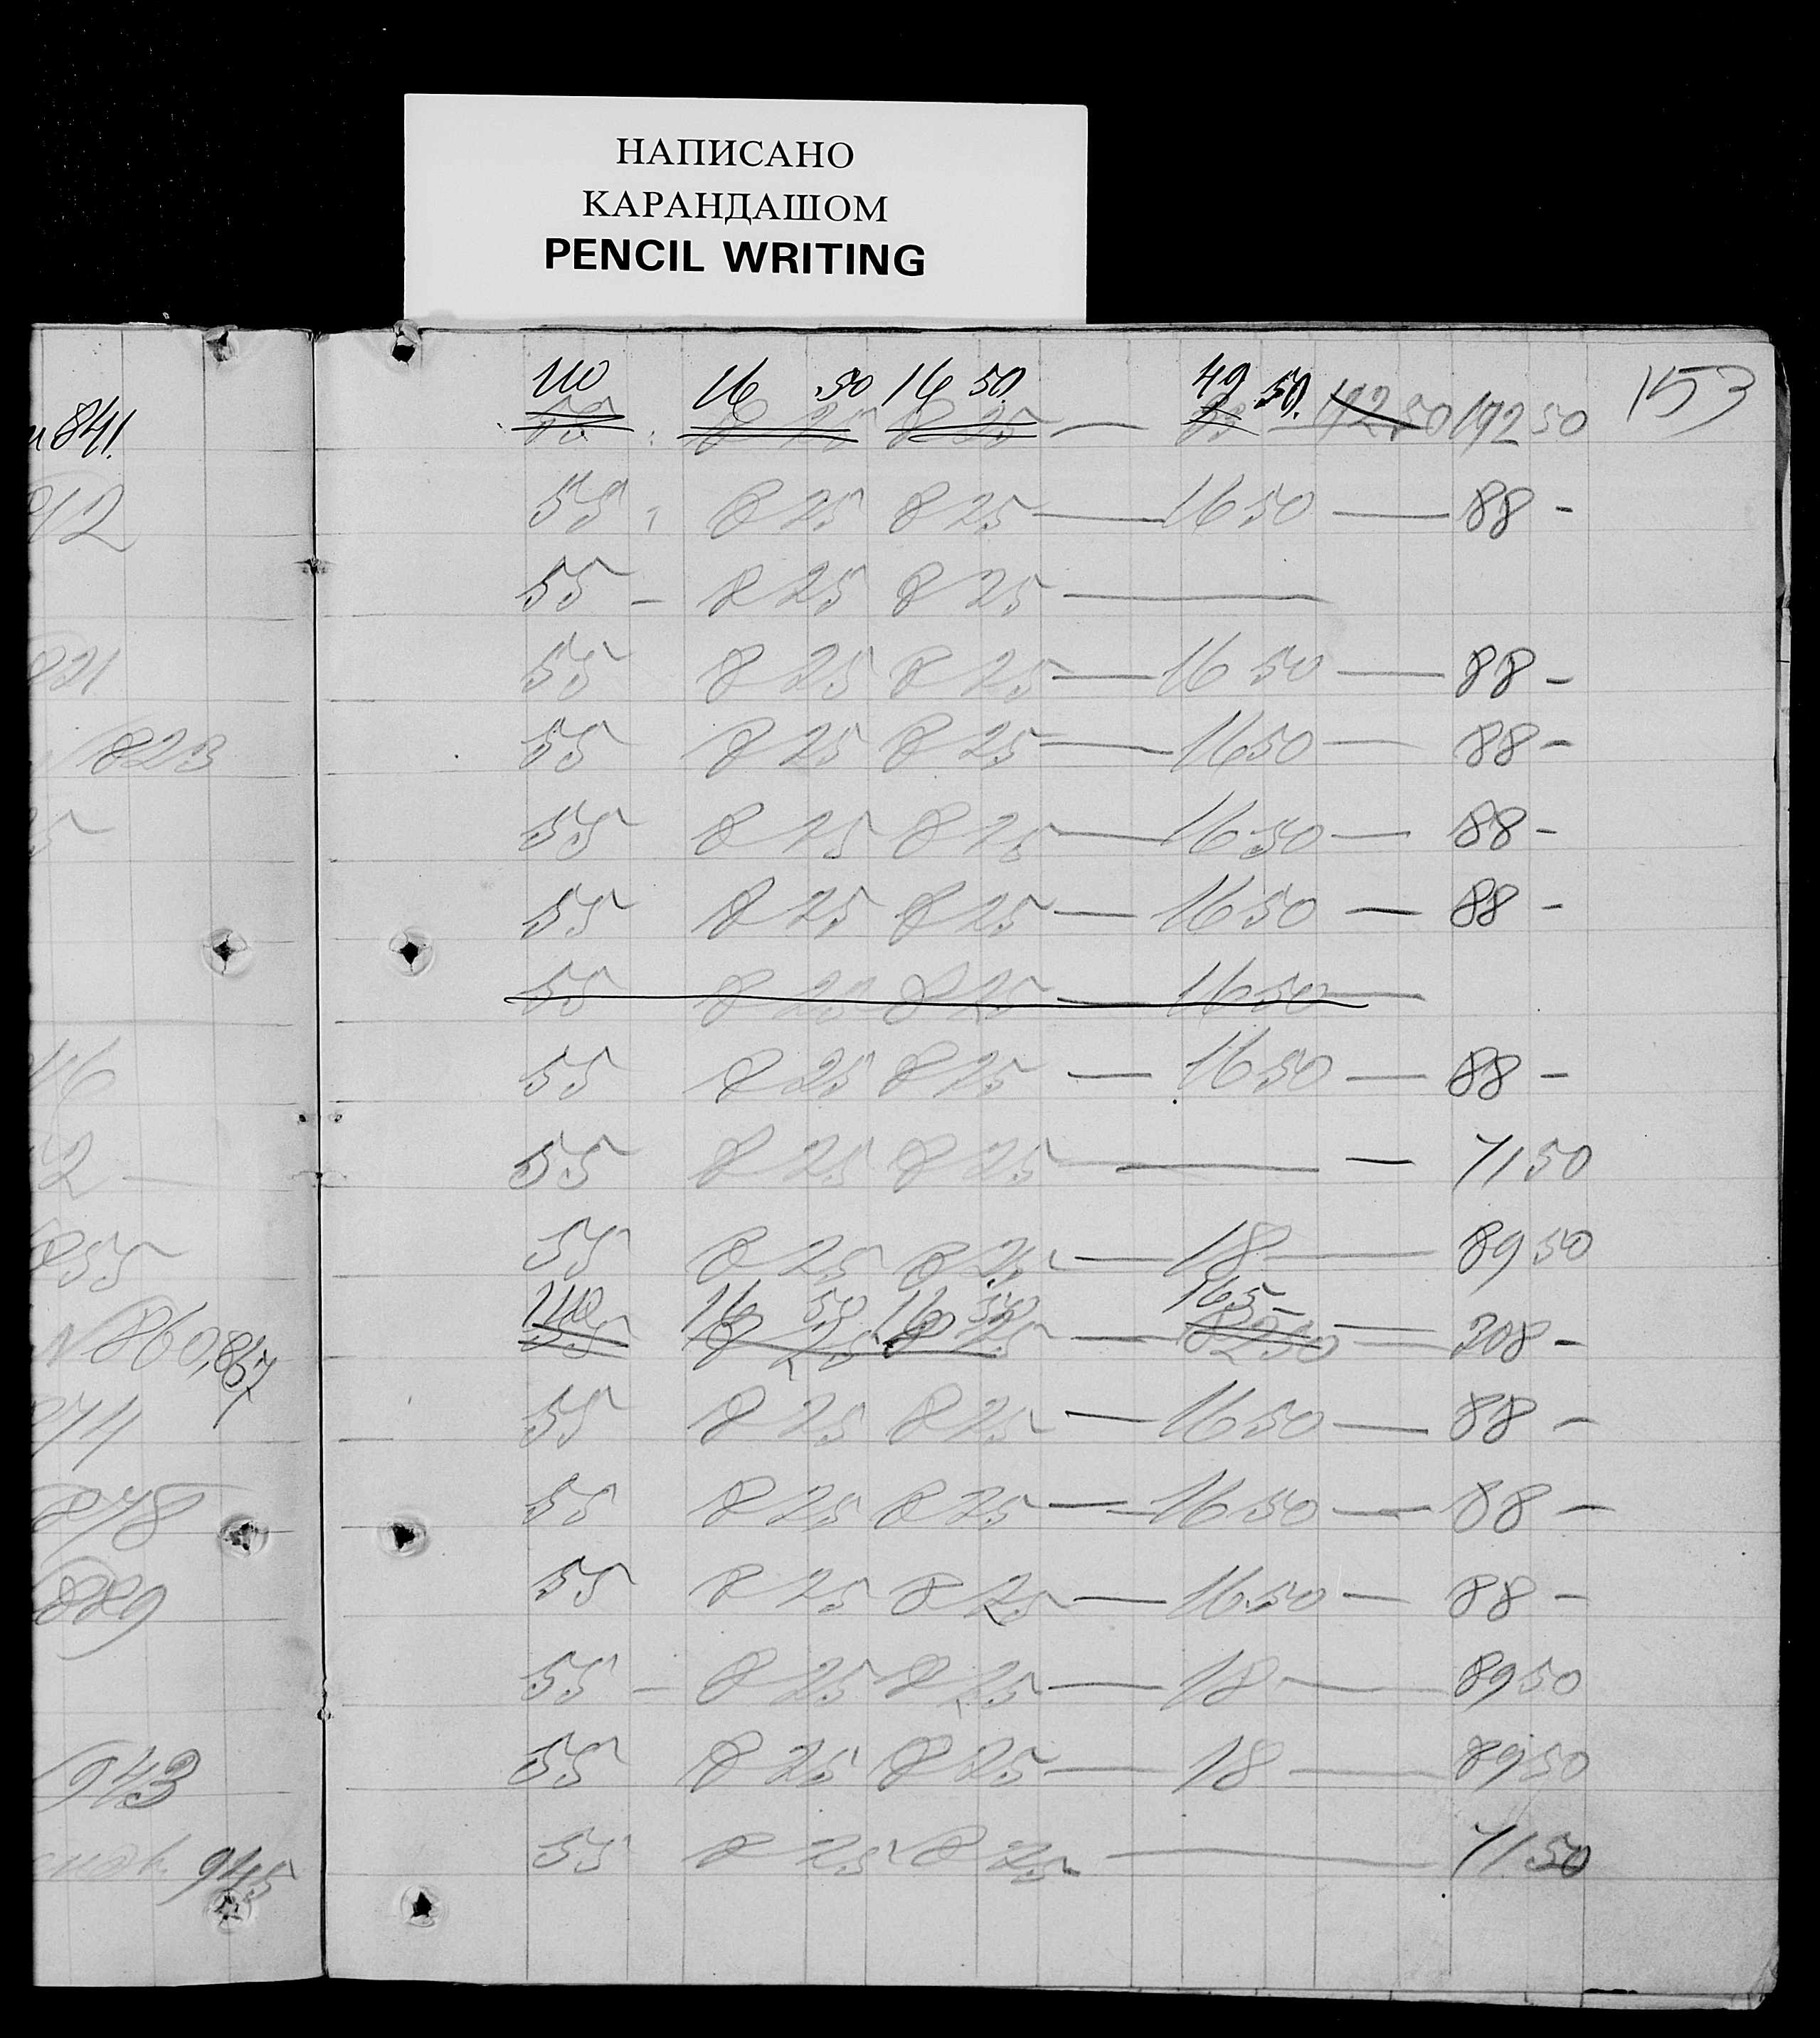 НАПИСАНО
КАРАНДАШОМ
PENCIL WRITING
153
110 16 50 16 50 49 50
841. 8 25 8 25 — 33 — 192 50 192 50
912 55 8 25 8 25 — 16 50 — 88 -
55 - 8 25 8 25 —
821 55 8 25 8 25 — 16 50 — 88 -
823 55 8 25 8 25 — 16 50 — 88 -
55 8 25 8 25 — 16 50 — 88 -
55 8 25 8 25 — 16 50 — 88 -
55 8 25 8 25 — 16 50 —
46 55 8 25 8 25 — 16 50 — 88 -
2 — 55 8 25 8 25 — — 71 50
855 55 8 25 8 25 — 18 — 89 50
110 16 50 16 50 165 -
N 860,867 55 8 25 8 25 — 82 50 — 308 -
874 55 8 25 8 25 — 16 50 — 88 -
878 55 8 25 8 25 — 16 50 — 88 -
889 55 8 25 8 25 — 16 50 — 88 -
55 - 8 25 8 25 — 18 — 89 50
943 55 8 25 8 25 — 18 — 89 50
945 55 8 25 8 25 — 71 50